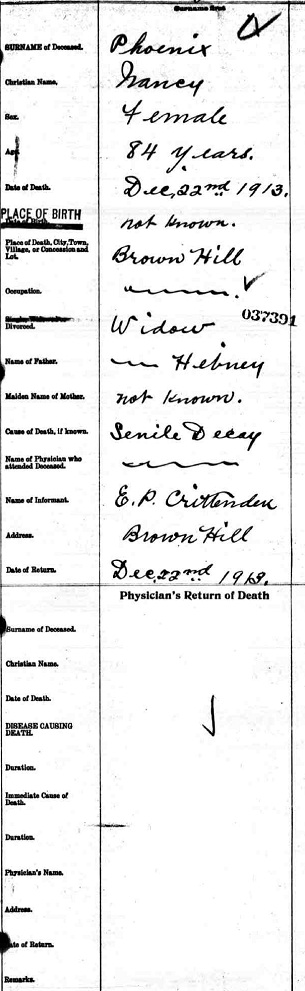 Surname first
SURNAME of Deceased. Phoenix
Christian Name. Nancy
Sex. Female
Age 84 Years.
Date of Death. Dec, 22nd 1913.
PLACE OF BIRTH not known.
Place of Death, City, Town, Village, or Concession and Lot. Brown Hill
Occupation.
037391
Divorced. Widow
Name of Father. Hebney
Maiden Name of Mother. not known.
Cause of Death, if known. Senile Decay
Name of Physician who attended Deceased.
Name of Informant. E. P. Crittenden
Address. Brown Hill
Date of Return. Dec, 22nd 1913.
Physician's Return of Death
Surname of Deceased.
Christian Name.
Date of Death.
DISEASE CAUSING DEATH.
Duration.
Immediate Cause of Death.
Duration.
Physician's Name.
Address.
Date of Return.
Remarks.